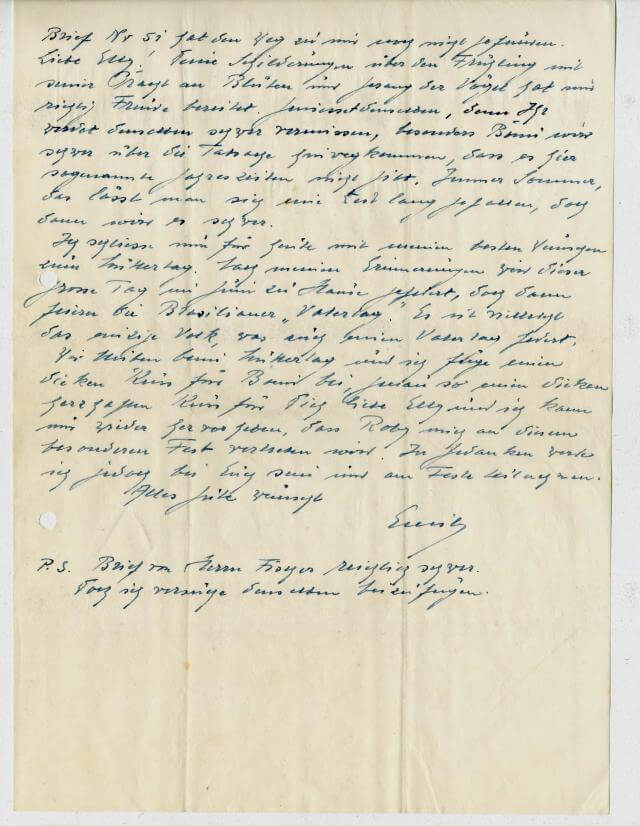 Brief No 51 hat den Weg zu mir noch nicht gefunden.
Liebe Elly! Deine Schilderungen über den Frühling mit
seiner Pracht an Blüten und Gesang der Vögel hat mir
richtig Freude bereitet. Geniesst denselben, denn Ihr
werdet denselben schwer vermissen, besonders Bomi wird
schwer über die Tatsache hinwegkommen, dass es hier
sogenannte Jahreszeiten nicht gibt. Immer Sommer,
das lässt man sich eine Zeit lang gefallen, doch
dann wird es schwer.
Ich schliesse nun für heute mit meinen besten Wünschen
zum Muttertag. Nach meinen Erinnerungen wird dieser
grosse Tag im Juni zu Hause gefeiert, doch dann
feiern die Brasilianer „Vatertag". Es ist vielleicht
das einzige Volk, was auch einen Vatertag feiert.
Wir bleiben beim Muttertag und ich füge einen
dicken Kuss für Bomi bei, genau so einen dicken
herzhaften Kuss für Dich liebe Elly und ich kann
nur wieder hervorheben, dass Roby mich an diesem
besonderen Fest vertreten wird. In Gedanken werde
ich jedoch bei Euch sein und am Feste teilnehmen.
Alles Gute wünscht
P.S. Brief von Herrn Fischer reichlich schwer.
Doch ich versuche denselben beizufügen.